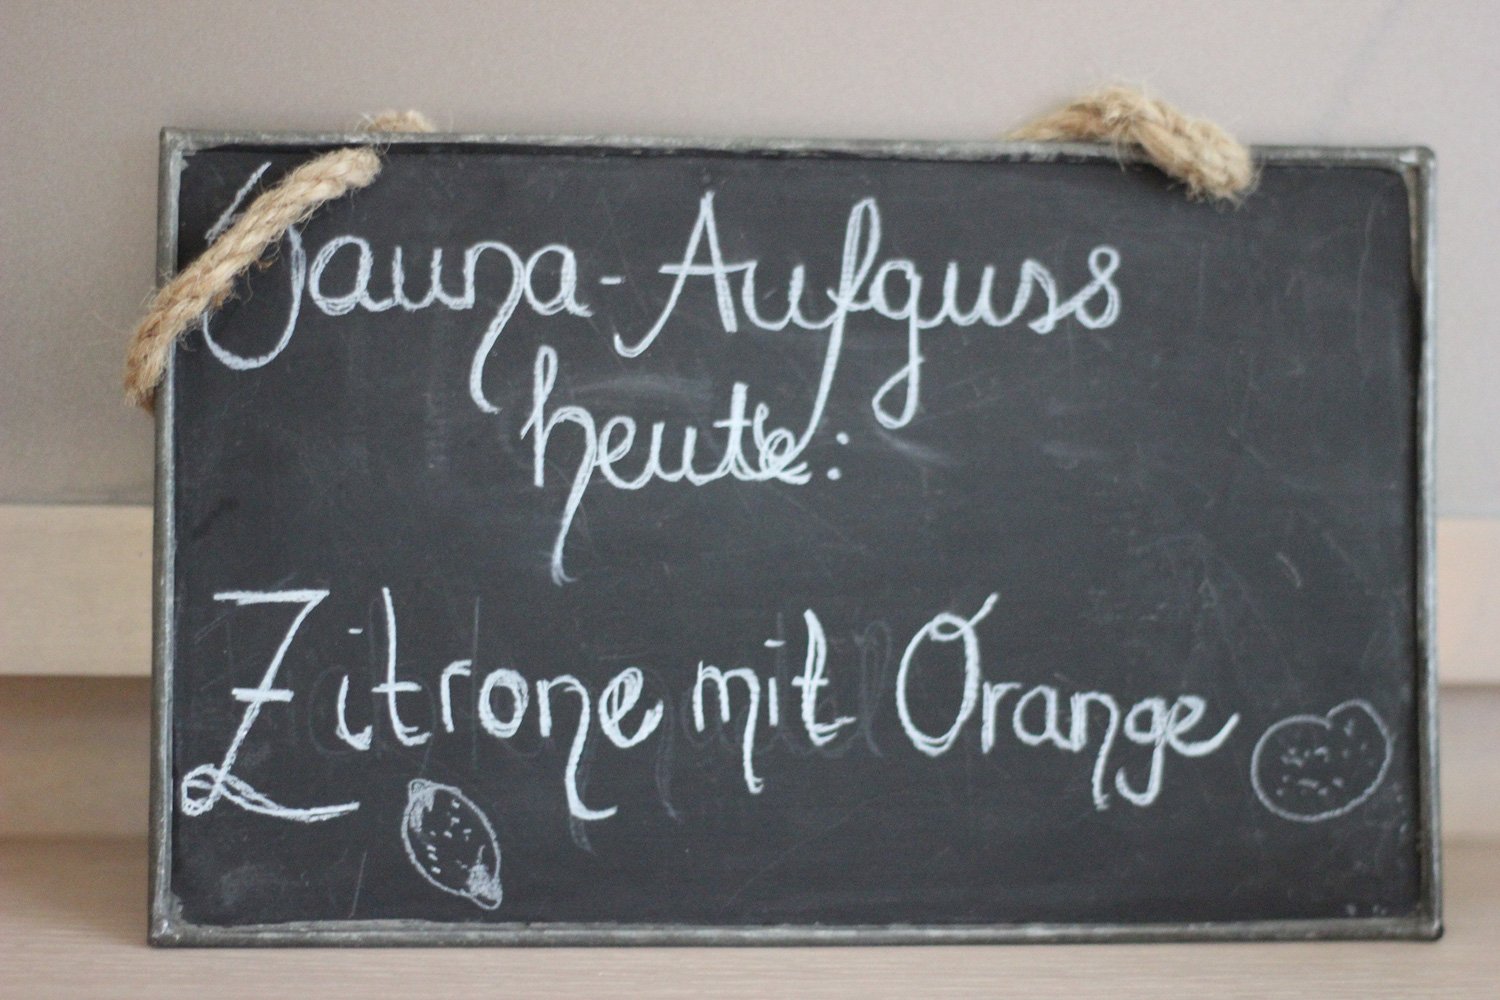 Sauna-Aufguss
heute:
Zitrone mit Orange